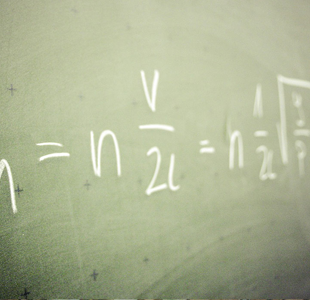 n = n v/2l = n 1/2l √